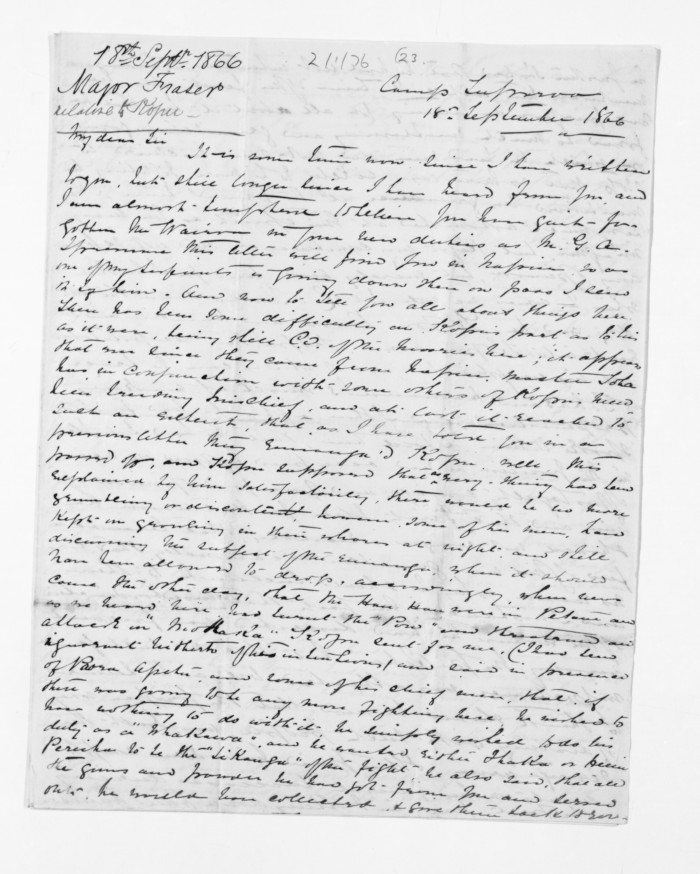 18th Septr 1866
21/1/76
23
Major Fraser
relative to Kopu
Camp Turiroa
18th September 1866
My dear Sir
It is some time now since I have written
to you, but still longer since I have heard from you, and
I am almost wondering whether you have quite for-
gotten the Wairoa in your new duties as M. G. A.
I presume this letter will find you in Napier, so as
one of my Serjeants is going down there on pass I send
it by him. And now to tell you all about things here
There has been some difficulty on Kopu's part as to his
as it were, being still C.O. of the Maories here; it appears
that ever since they came from Napier, Master
has, in conjunction with some others of Kopu's
been breeding mischief, and at last it reached to
such an extent, that, as I have told you in a
previous letter they Kopu, well, this
passed by, and Kopu supposed that as every thing had been
explained by him satisfactorily, there would be no more
grumbling or discontent however some of his men, have
kept on growling in their whares at night and still
discussing the subject of the when it should
have been allowed to drop, accordingly, when news
came the other day, that the Hau Haus were in Petane and
as we heard here had burnt the Pa and threatened an
attack on "Mohaka" Kopu sent for me, (I had been
ignorant hitherto of his intentions) and said in presence
of Paora Apatu, and some of his chief men, that if
there was going to be any more fighting here, he wished to
have nothing to do with it, he simply wished to do his
duty as a "Whakawa", and he wanted either Ihaka or
to be the of the fight he also said, that all
the guns and powder he had got from you and served
out, he would have collected & give them back to you